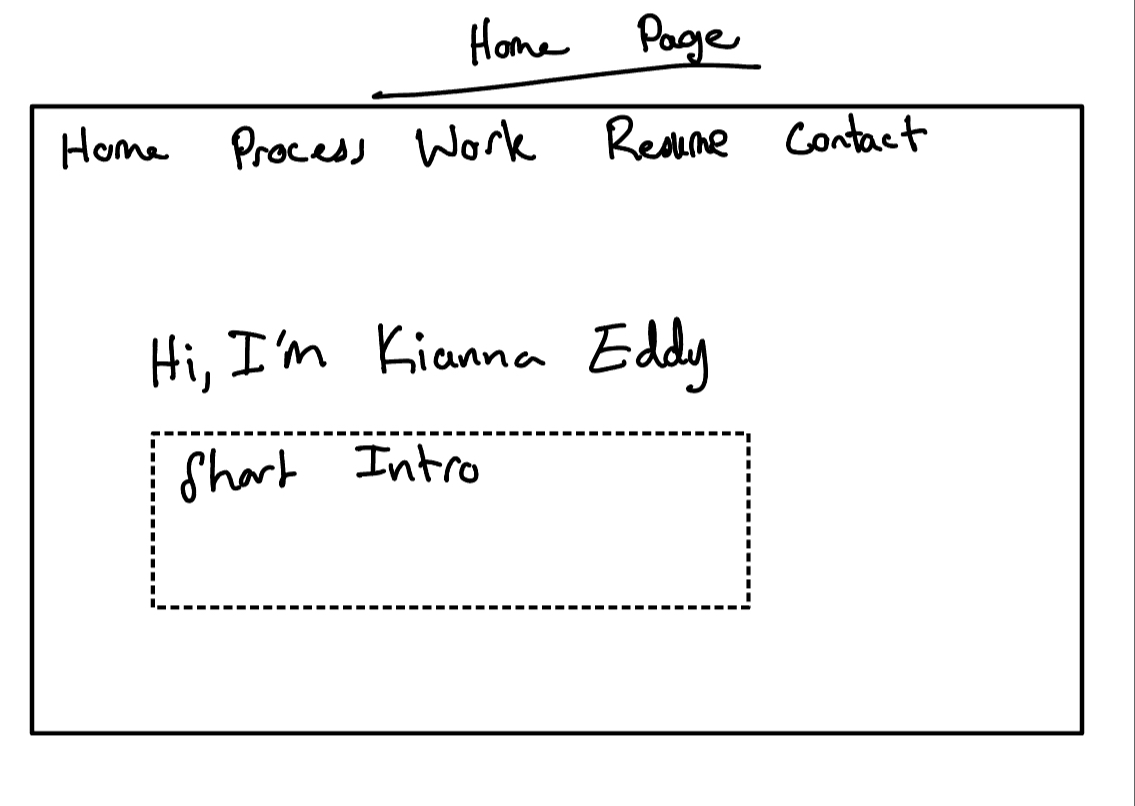 Home Page
Home Process Work Resume Contact
Hi, I'm Kianna Eddy
Short Intro